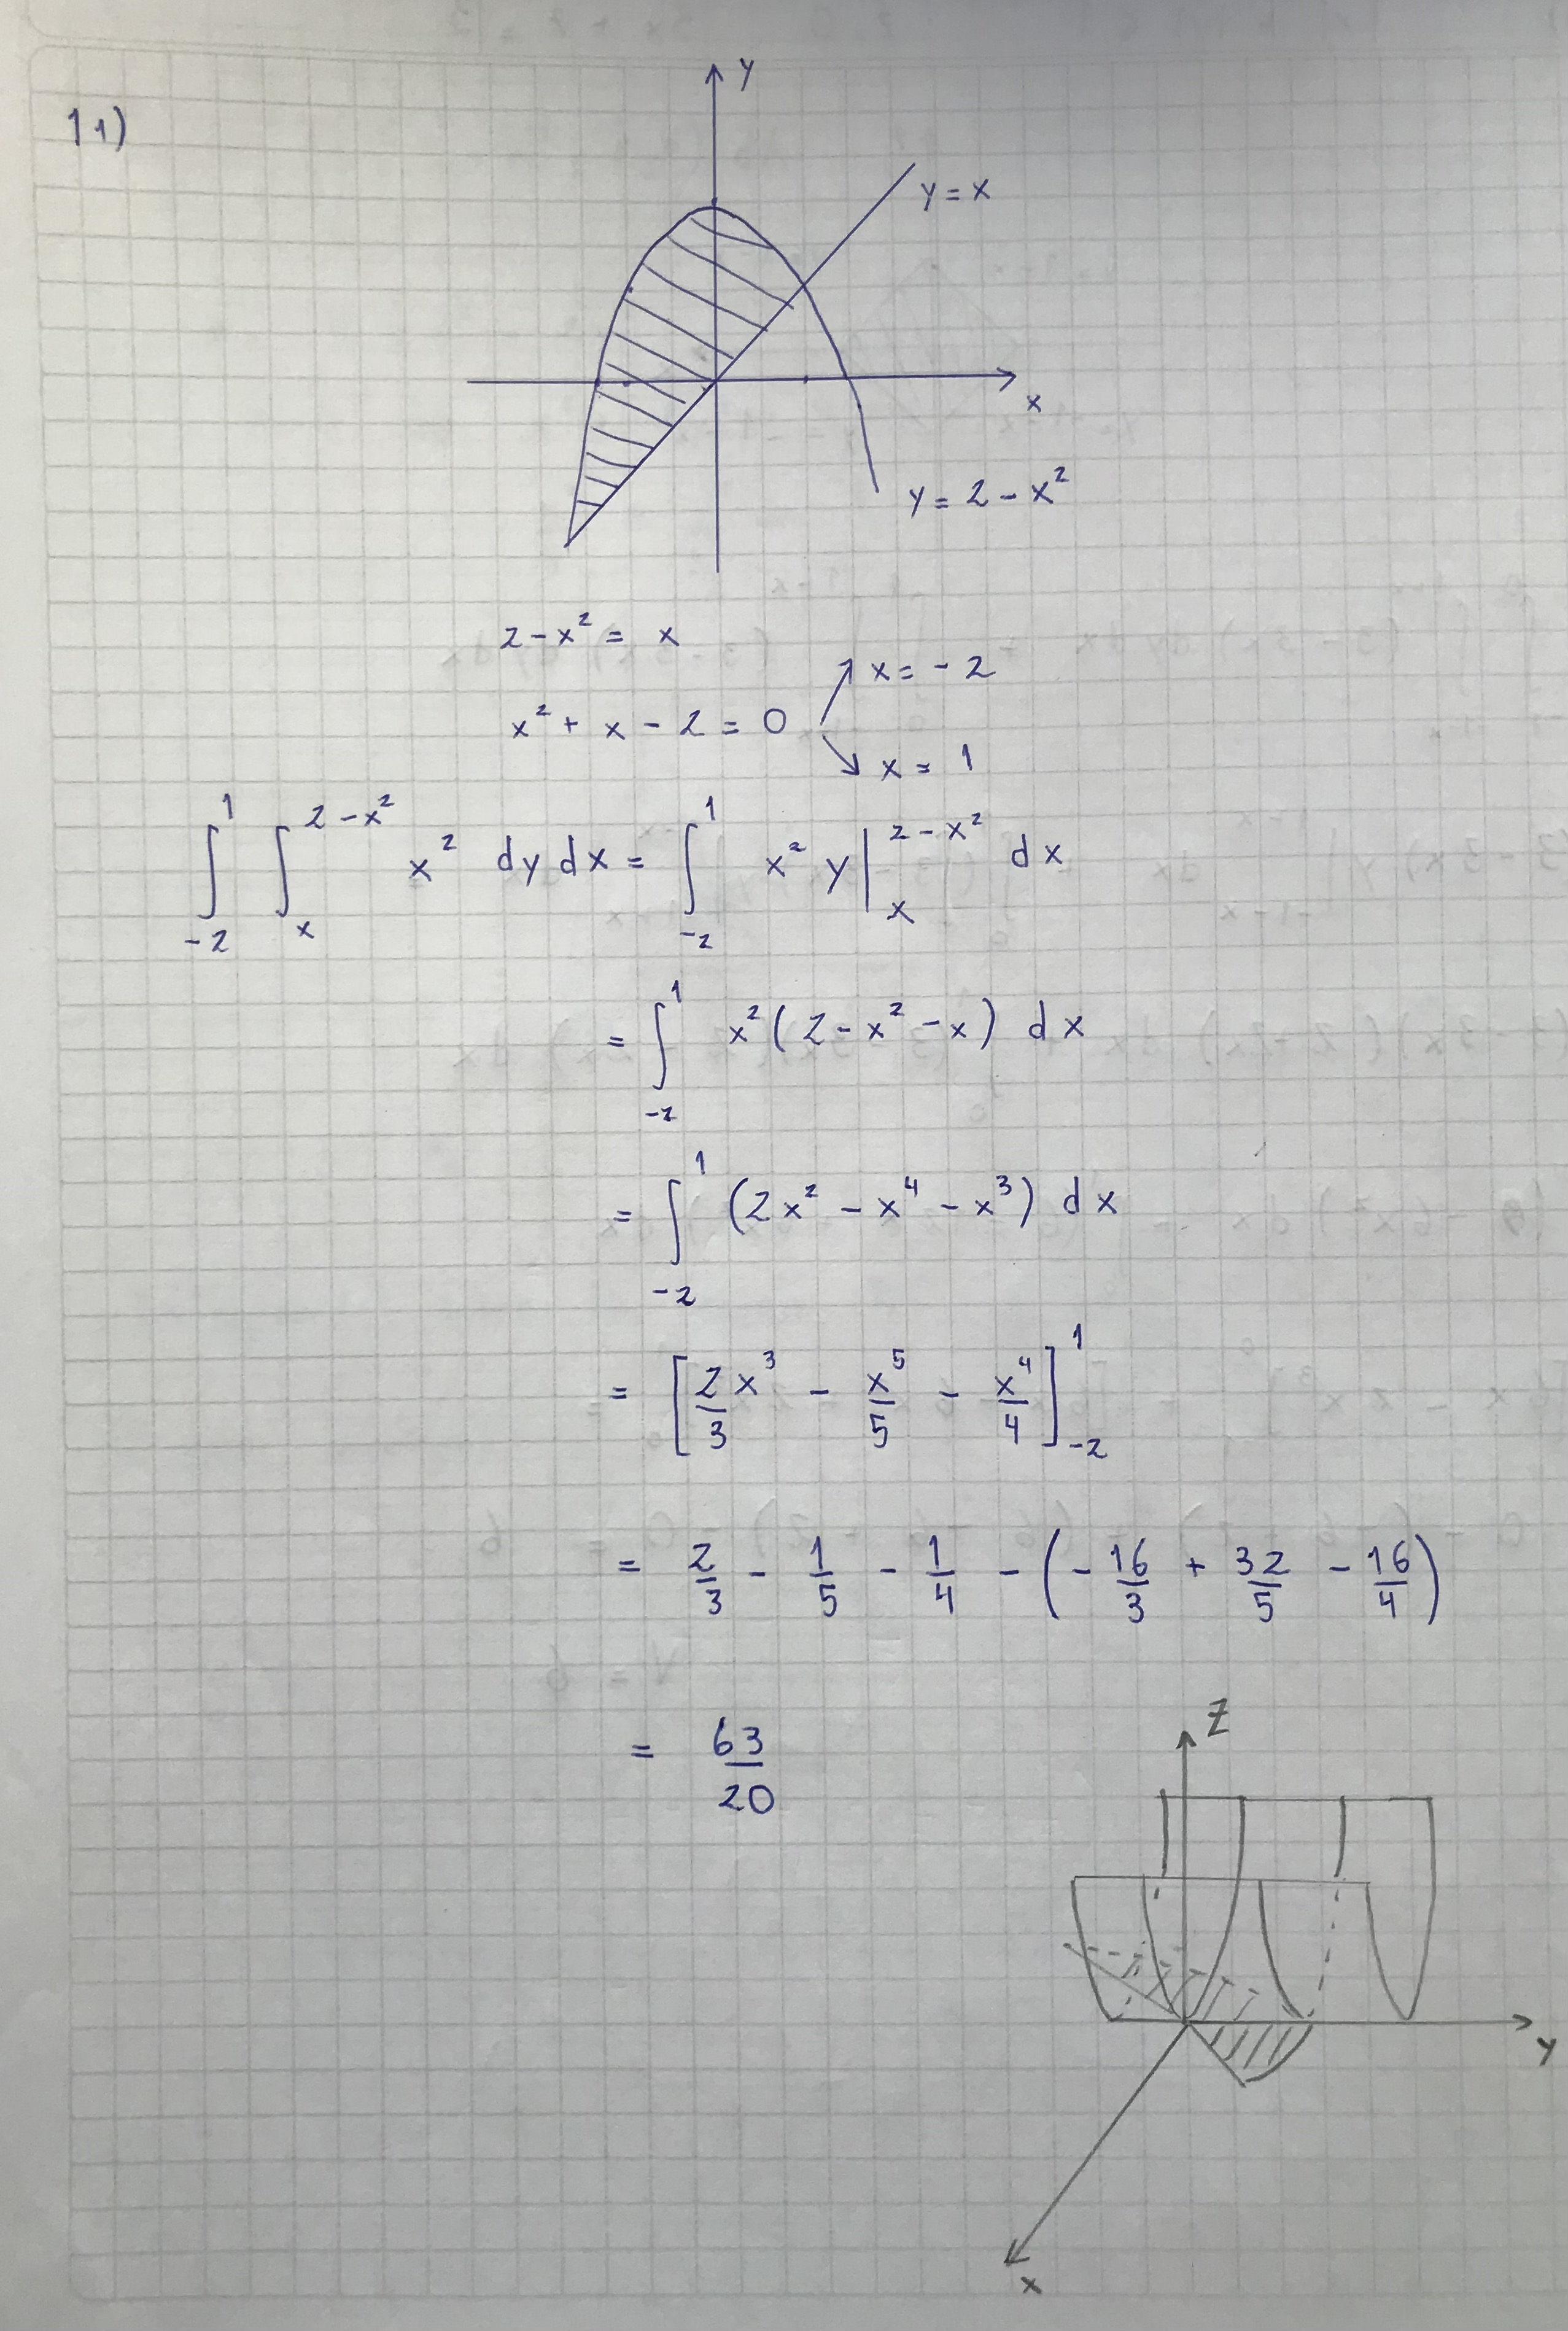 11)
y
y = x
x
y = 2 - x²
2 - x² = x
x = -2
x² + x - 2 = 0
x = 1
∫_{-2}^{1} ∫_{x}^{2-x²} x² dy dx = ∫_{-2}^{1} x² y |_{x}^{2-x²} dx
= ∫_{-2}^{1} x² (2 - x² - x) dx
= ∫_{-2}^{1} (2x² - x⁴ - x³) dx
= [2/3 x³ - x⁵/5 - x⁴/4]_{-2}^{1}
= 2/3 - 1/5 - 1/4 - (- 16/3 + 32/5 - 16/4)
= 63/20
z
y
x